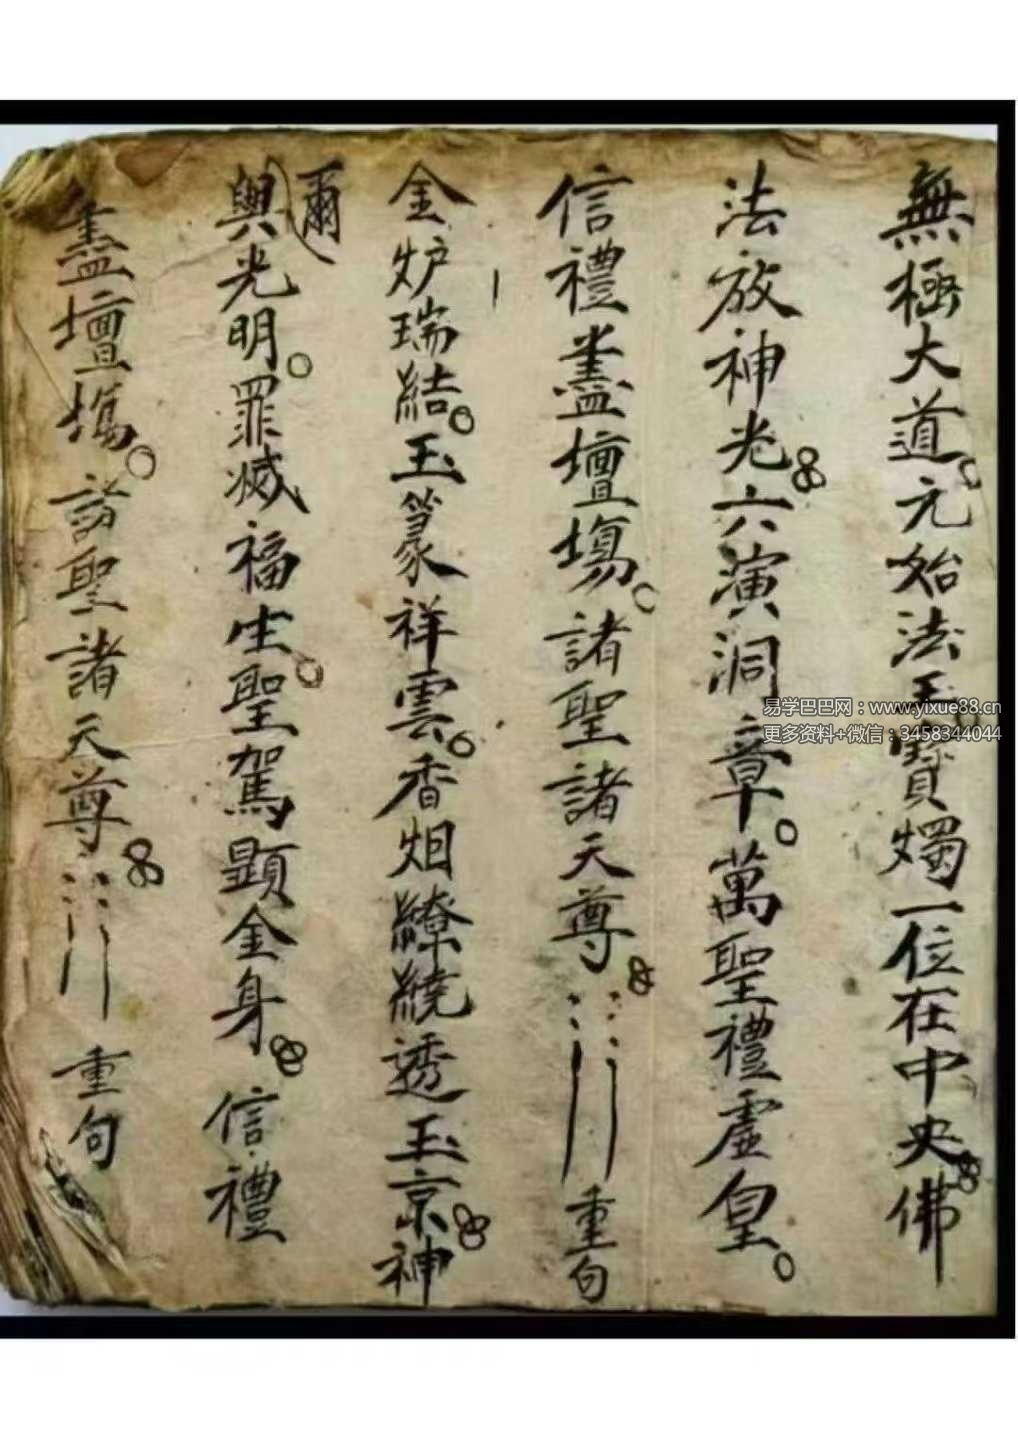 無極大道元始法王寶燭一位在中央佛
法放神光六演洞章萬聖禮虛皇
信禮盡壇塲諸聖諸天尊重句
金炉瑞結玉篆祥雲香烟繚繞透玉京神
爾
與光明罪滅福生聖駕顕金身信禮
盡壇塲諸聖諸天尊重句
易学巴巴网：www.yixue88.cn
更多资料+微信：3458344044